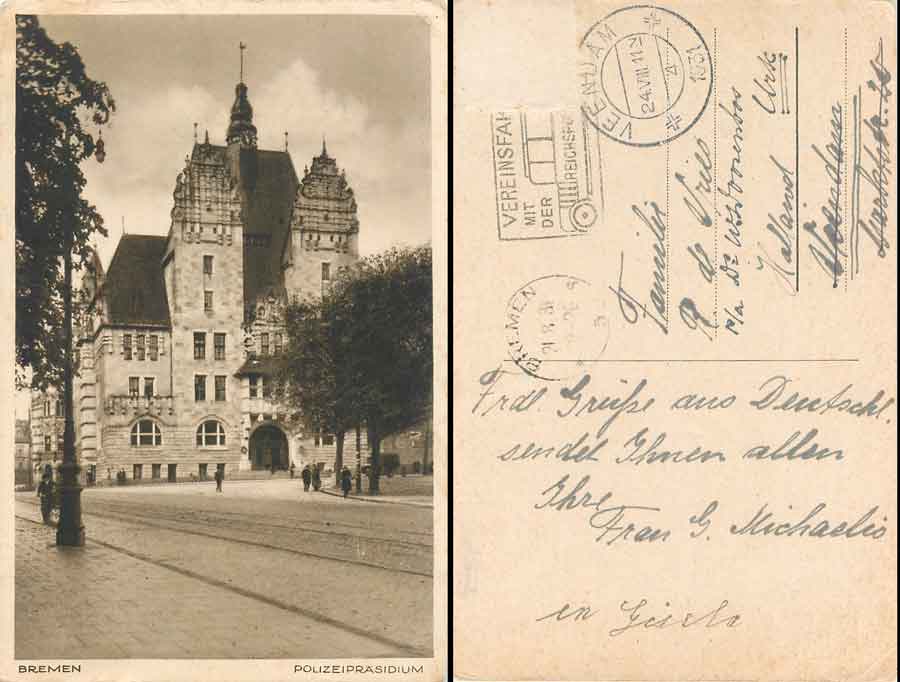 BREMEN
POLIZEIPRÄSIDIUM
VEENDAM
24.VIII.11V
1931
A
VEREINSFAH
MIT
DER REICHSPO
BREMEN
Familie
R. de Vries
p/a Dr
Holland
Urk
Veendam
Frdl. Grüße aus Deutschl.
sendet Ihnen allen
Ihre
Frau G. Michaelis
en Gisela